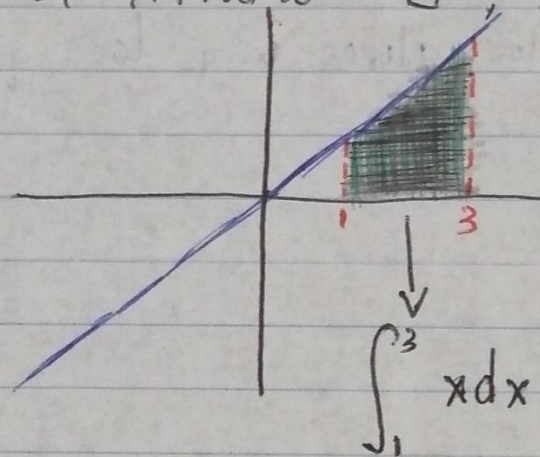 1 3
∫₁³ xdx